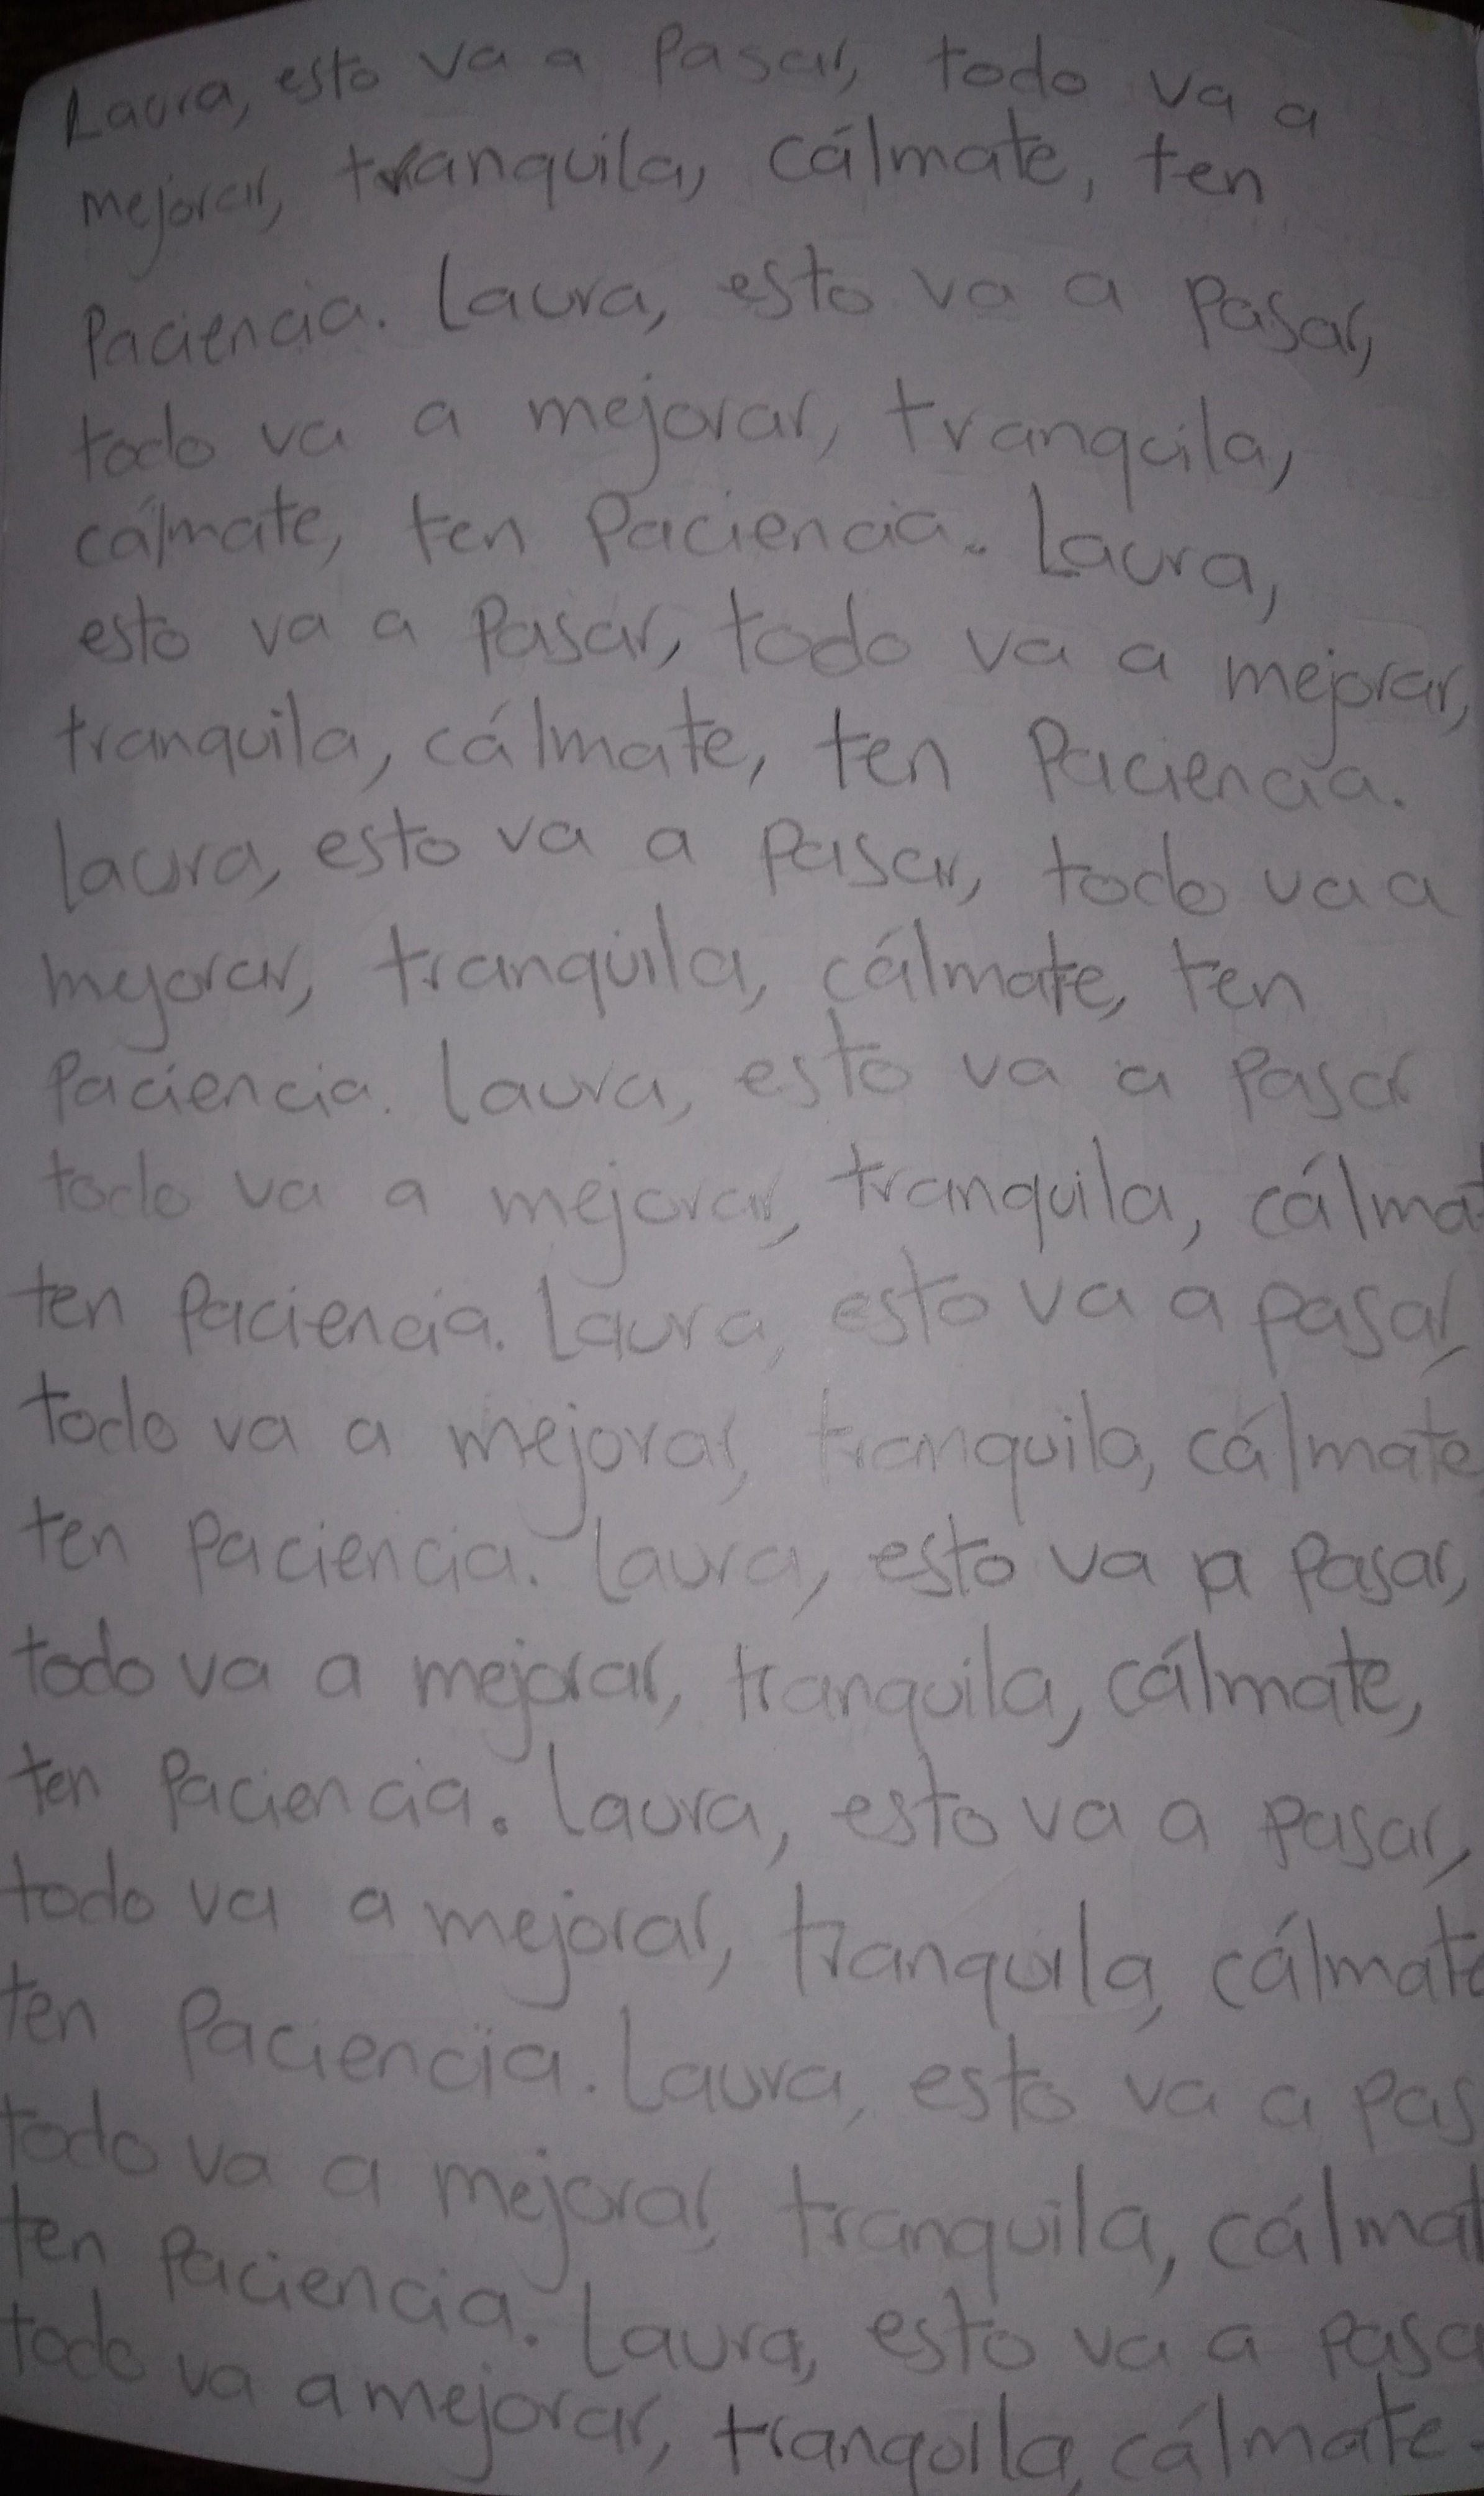 Laura, esto va a Pasar, todo va a
mejorar, tranquila, cálmate, ten
Paciencia. Laura, esto va a Pasar,
todo va a mejorar, tranquila,
cálmate, ten Paciencia. Laura,
esto va a Pasar, todo va a mejorar,
tranquila, cálmate, ten Paciencia.
Laura, esto va a Pasar, todo va a
mejorar, tranquila, cálmate, ten
Paciencia. Laura, esto va a Pasar
todo va a mejorar, tranquila, cálmat
ten Paciencia. Laura, esto va a pasar,
todo va a mejorar, tranquila, cálmate,
ten Paciencia. Laura, esto va a Pasar,
todo va a mejorar, tranquila, cálmate,
ten Paciencia. Laura, esto va a Pasar,
todo va a mejorar, tranquila, cálmate
ten Paciencia. Laura, esto va a pas
todo va a mejorar, tranquila, cálmat
ten Paciencia. Laura, esto va a Pasa
todo va a mejorar, tranquila, cálmate.